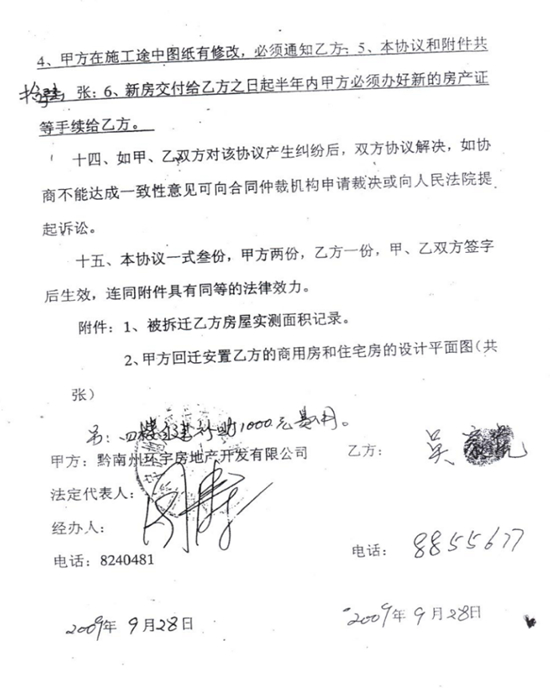 4、甲方在施工途中图纸有修改，必须通知乙方；5、本协议和附件共
张；6、新房交付给乙方之日起半年内甲方必须办好新的房产证
等手续给乙方。
十四、如甲、乙双方对该协议产生纠纷后，双方协议解决，如协
商不能达成一致性意见可向合同仲裁机构申请裁决或向人民法院提
起诉讼。
十五、本协议一式叁份，甲方两份，乙方一份，甲、乙双方签字
后生效，连同附件具有同等的法律效力。
附件：1、被拆迁乙方房屋实测面积记录。
2、甲方回迁安置乙方的商用房和住宅房的设计平面图（共
张）
补助1000元
甲方：黔南州环宇房地产开发有限公司 乙方：吴
法定代表人：
经办人：
电话：8240481 电话：8855677
2009年9月28日 2009年9月28日